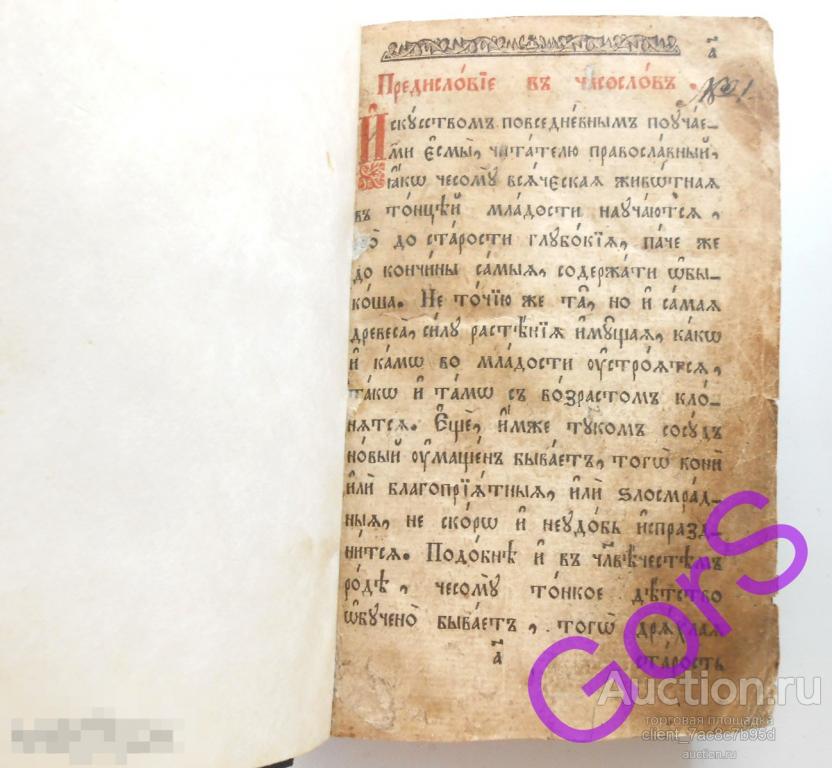 а҃
Предисло́вїе въ часосло́въ .
И҆скꙋ́сствомъ повседне́внымъ поꙋча́е-
ми є҆смы̀, чита́телю правосла́вный,
ꙗ҆́кѡ чесомꙋ̀ всѧ́ческаѧ живѡ́тнаѧ
въ то́нцѣй мла́дости наꙋча́ютсѧ,
то̀ до ста́рости глꙋбо́кїѧ, па́че же
до кончи́ны са́мыѧ, содержа́ти ѡ҆бы-
ко́ша. Не то́чїю же та̑, но и҆ са́маѧ
древеса̀, си́лꙋ расте́нїѧ и҆мꙋ́щаѧ, ка́кѡ
и҆ ка́мѡ во мла́дости ᲂу҆стро́ѧтсѧ,
та́кѡ и҆ та́мѡ съ во́зрастомъ кло́-
нѧтсѧ. Є҆щѐ, и҆́мже тꙋ́комъ сосꙋ́дъ
но́вый ᲂу҆ма́щенъ быва́етъ, тогѡ̀ вони̑
и҆лѝ благопрїѧ́тныѧ, и҆лѝ ѕлосмра́д-
ныѧ, не ско́рѡ и҆ неꙋдо́бь и҆спразд-
ни́тсѧ. Подо́бнѣ и҆ въ чл҃вѣ́честѣмъ
ро́дѣ, чесомꙋ̀ то́нкое дѣ́тство
ѡ҆бꙋчено̀ быва́етъ, тогѡ̀ дрѧ́хлаѧ
а҃ ста́рость
GorS
Auction.ru
торговая площадка
client_7ac8c7b95d
auction.ru